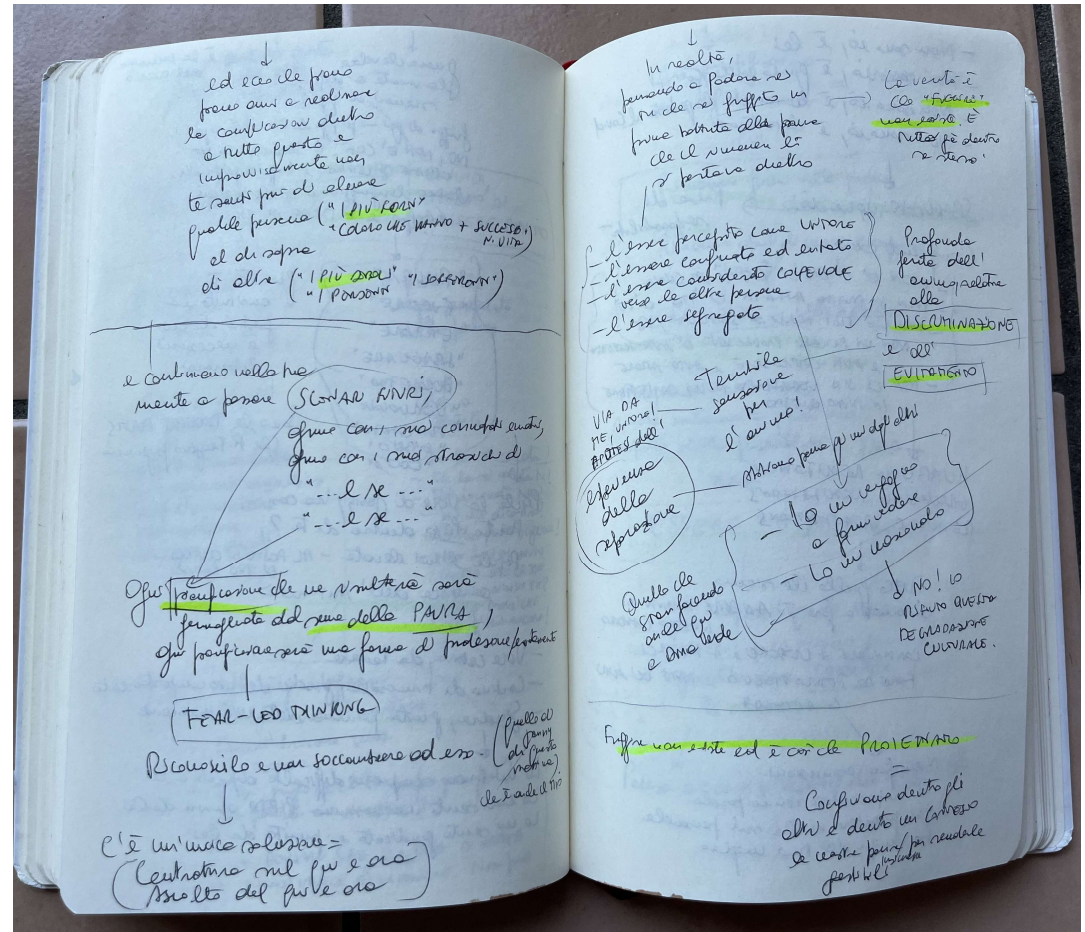 ed ecco che
a realizzare
le dietro
a tutto questo e
improvvisamente non
te senti più di elevare
qualche persona ("I PIÙ FORTI"
"COLORO CHE HANNO + SUCCESSO"
N. VITA)
al di sopra
di altre ("I PIÙ DEBOLI" "I SOFFERENTI")
"I
e continuano nella tua
mente a passare SCENARI FUTURI,
ognuno con i suoi emotivi,
ognuno con i suoi strascichi di
"...E se ..."
"...E se ..."
Ogni pianificazione che ne risulterà sarà
dal seme della PAURA,
ogni pianificazione sarà una forma di protezione/
FEAR-LED THINKING
Riconoscilo e non soccombere ad esso -
(quello di
di questa
mattina)
che è anche il mio
C'è un'unica soluzione =
(Centratura sul qui e ora
Ascolto del qui e ora)
In realtà,
pensando a Padova
anche se fuggito in
dalla paura
che
si portava dietro
La verità è
che "FUGGIRE"
non esiste. È
tutto già dentro
se stessi!
- l'essere percepito come UNTORE
- l'essere ed evitato
- l'essere considerato COLPEVOLE
verso le altre persone
- l'essere segregato
Profonda
ferita dell'
anima relativa
alla
DISCRIMINAZIONE
e all'
EVITAMENTO
Terribile
sensazione
per
l'anima!
VIA DA
ME, UNTORE!
APOTEOSI dell'
esperienza
della
separazione
Abbiamo paura gli uni degli altri
- Io mi vergogno
a farmi vedere
- Io mi nascondo
Quello che
sta
anche qui
a
NO! IO
RIFIUTO QUESTA
DEGRADAZIONE
CULTURALE.
Fuggire non esiste ed è così che PROIETTIAMO
=
dentro gli
altri e dentro un CONTESTO
le nostre paure/per renderle
gestibili